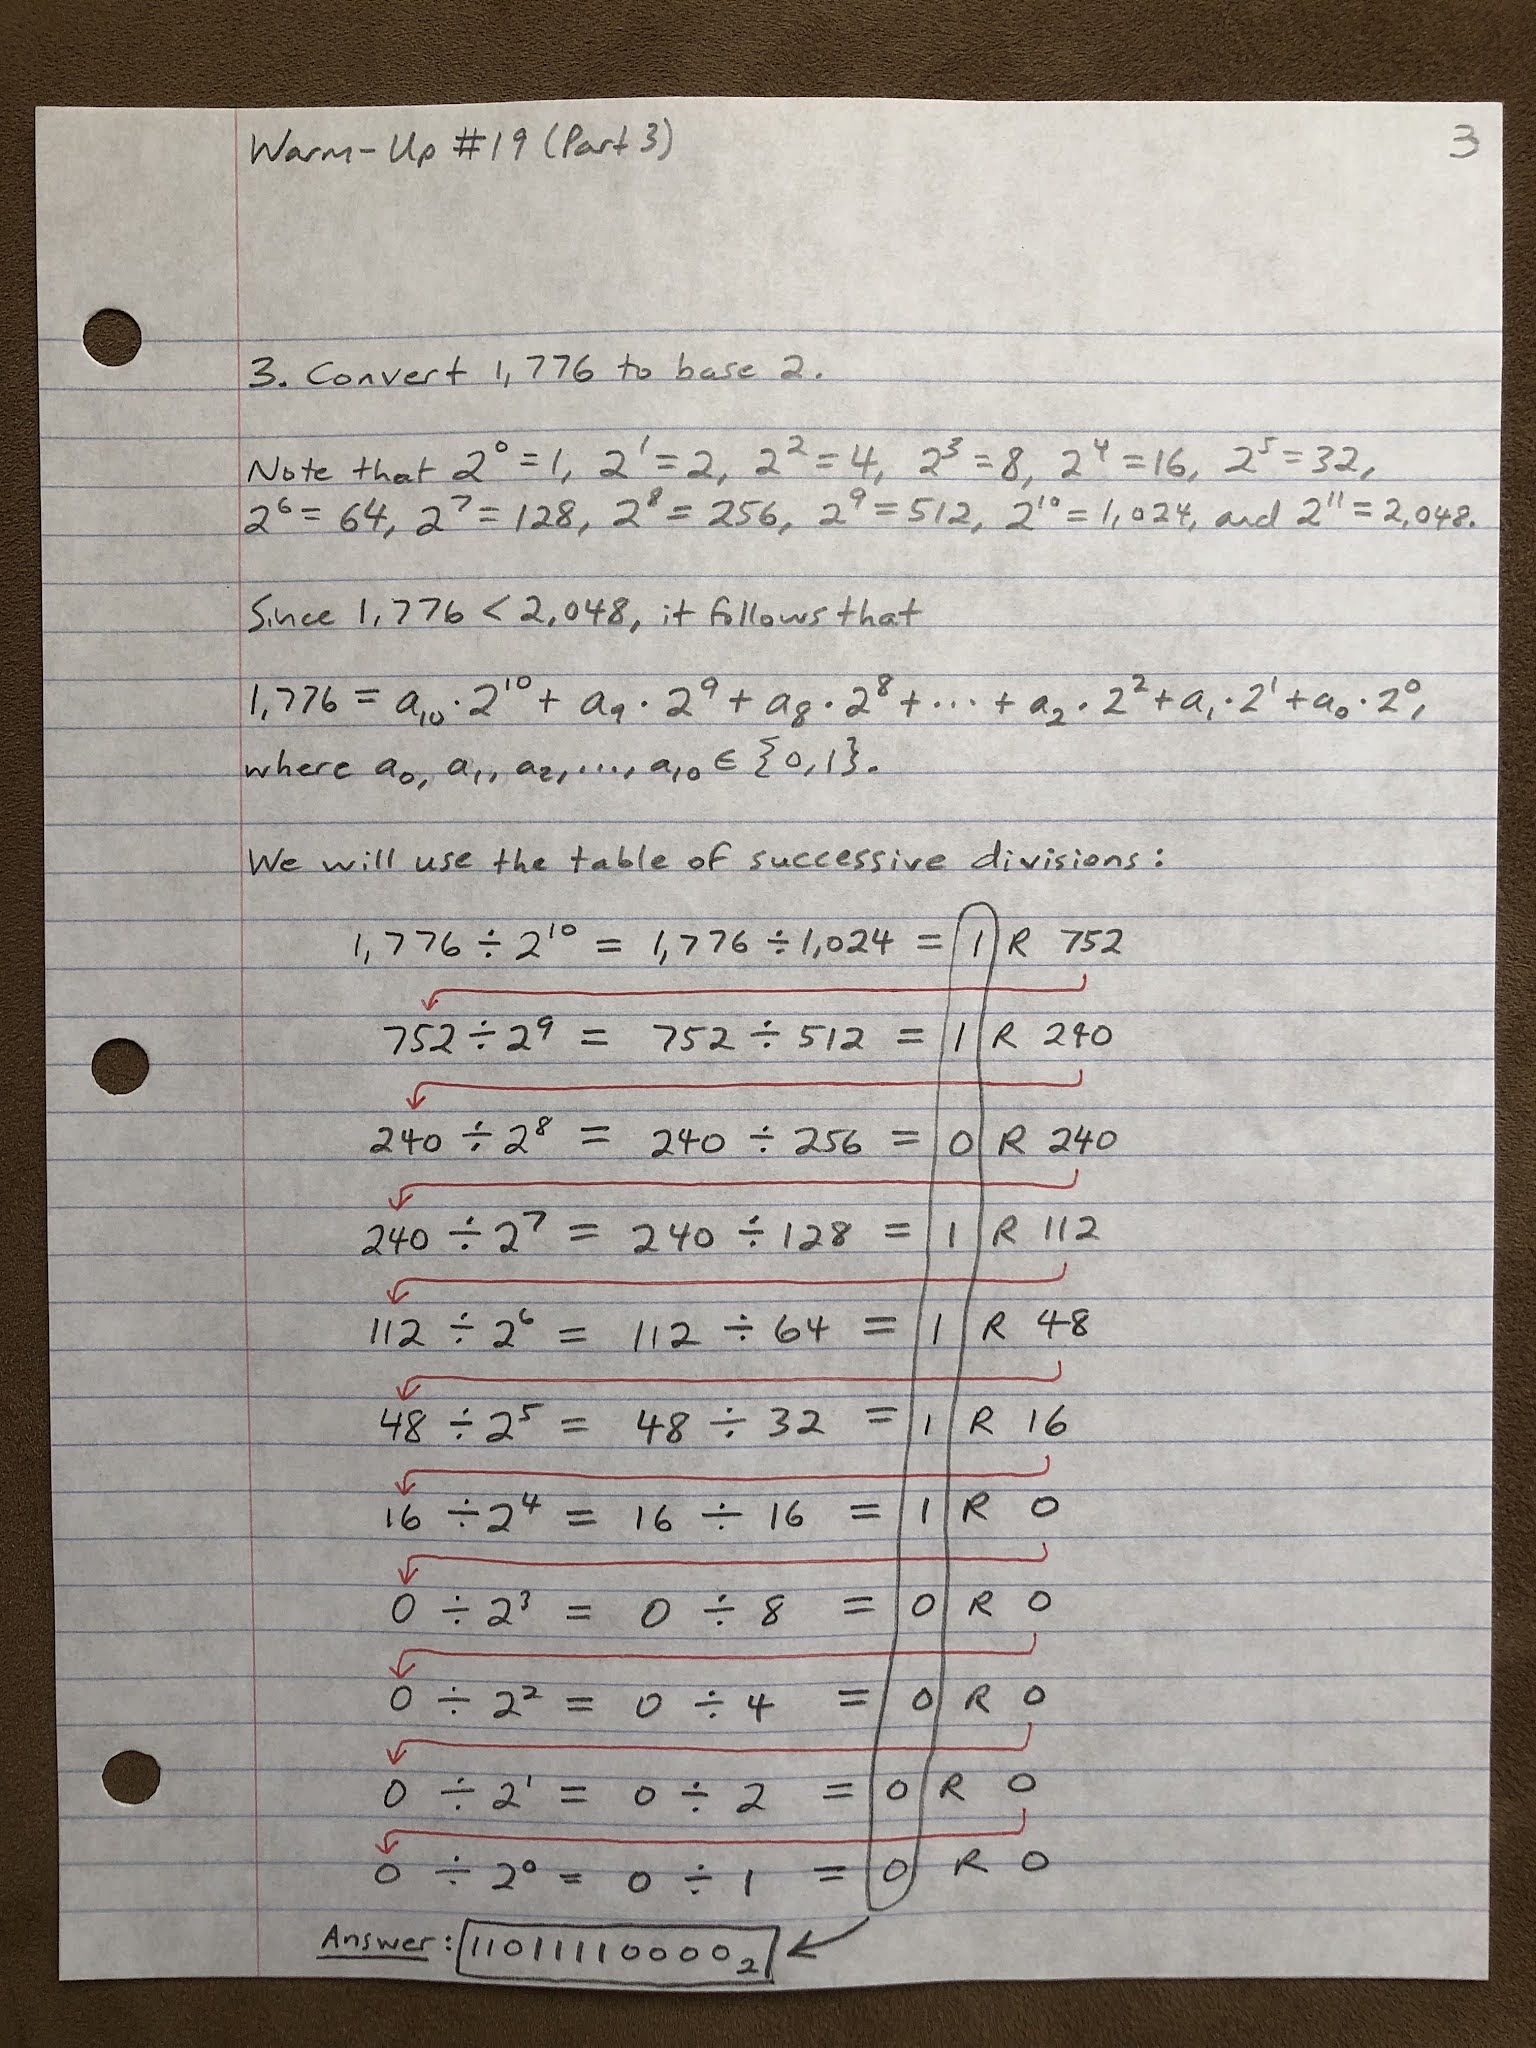 Warm-Up #19 (Part 3)
3
3. Convert 1,776 to base 2.
Note that 2⁰ = 1, 2¹ = 2, 2² = 4, 2³ = 8, 2⁴ = 16, 2⁵ = 32,
2⁶ = 64, 2⁷ = 128, 2⁸ = 256, 2⁹ = 512, 2¹⁰ = 1,024, and 2¹¹ = 2,048.
Since 1,776 < 2,048, it follows that
1,776 = a₁₀ · 2¹⁰ + a₉ · 2⁹ + a₈ · 2⁸ + ··· + a₂ · 2² + a₁ · 2¹ + a₀ · 2⁰,
where a₀, a₁, a₂, ..., a₁₀ ∈ {0,1}.
We will use the table of successive divisions:
1,776 ÷ 2¹⁰ = 1,776 ÷ 1,024 = 1 R 752
752 ÷ 2⁹ = 752 ÷ 512 = 1 R 240
240 ÷ 2⁸ = 240 ÷ 256 = 0 R 240
240 ÷ 2⁷ = 240 ÷ 128 = 1 R 112
112 ÷ 2⁶ = 112 ÷ 64 = 1 R 48
48 ÷ 2⁵ = 48 ÷ 32 = 1 R 16
16 ÷ 2⁴ = 16 ÷ 16 = 1 R 0
0 ÷ 2³ = 0 ÷ 8 = 0 R 0
0 ÷ 2² = 0 ÷ 4 = 0 R 0
0 ÷ 2¹ = 0 ÷ 2 = 0 R 0
0 ÷ 2⁰ = 0 ÷ 1 = 0 R 0
Answer: 11011110000₂